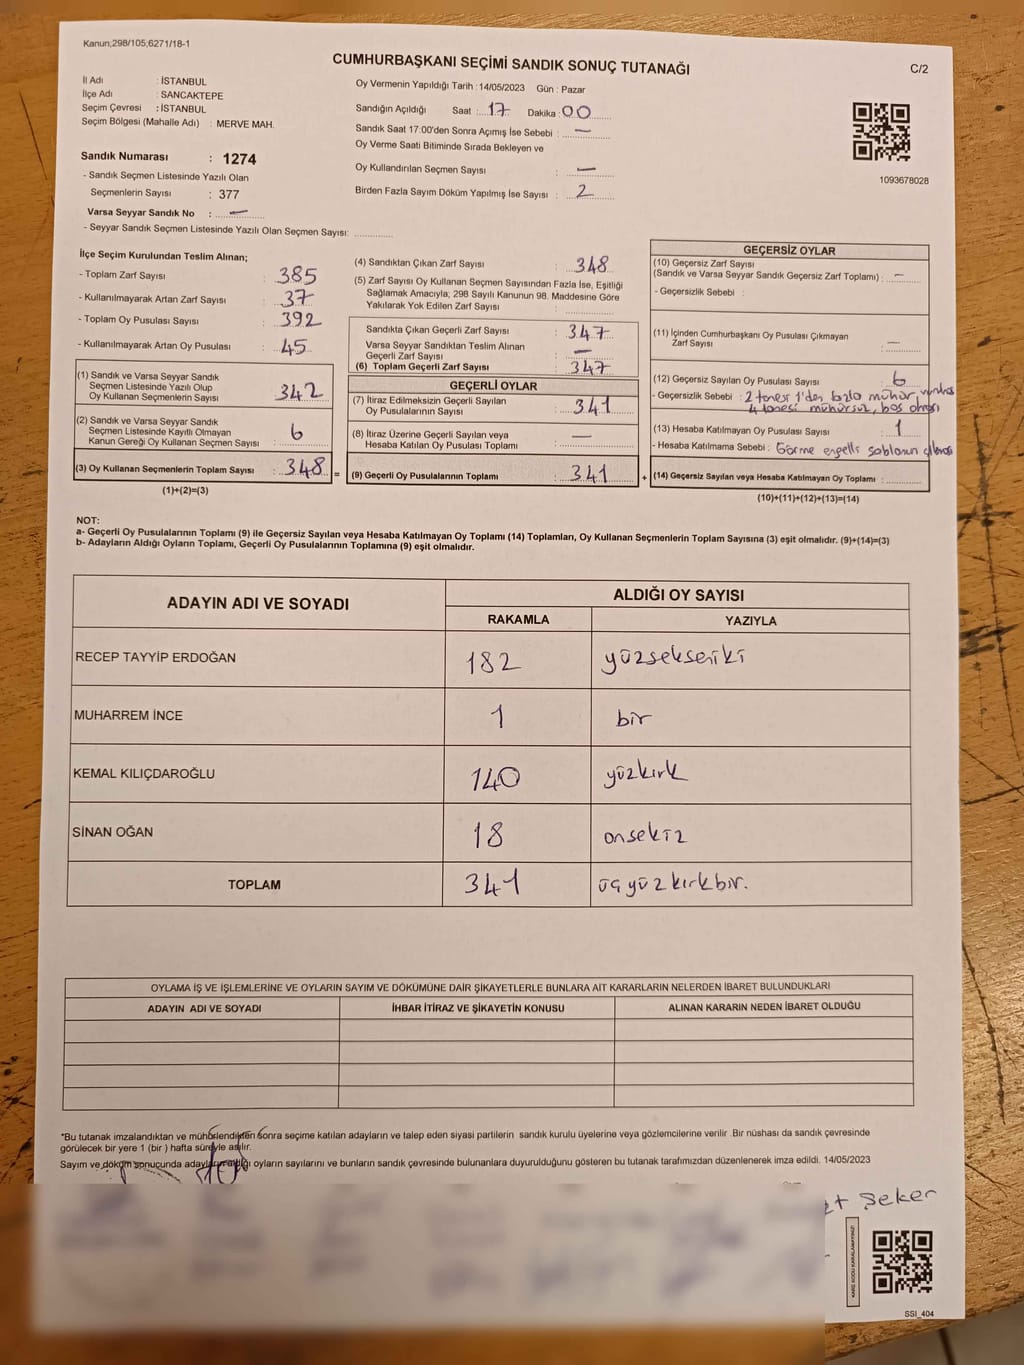 Kanun;298/105;6271/18-1
CUMHURBAŞKANI SEÇİMİ SANDIK SONUÇ TUTANAĞI
C/2
İl Adı : İSTANBUL
İlçe Adı : SANCAKTEPE
Seçim Çevresi : İSTANBUL
Seçim Bölgesi (Mahalle Adı) : MERVE MAH.
Sandık Numarası : 1274
- Sandık Seçmen Listesinde Yazılı Olan
Seçmenlerin Sayısı : 377
Varsa Seyyar Sandık No : —
- Seyyar Sandık Seçmen Listesinde Yazılı Olan Seçmen Sayısı: ............
Oy Vermenin Yapıldığı Tarih : 14/05/2023 Gün : Pazar
Sandığın Açıldığı Saat : 17 Dakika : 00
Sandık Saat 17:00'den Sonra Açımış İse Sebebi : —
Oy Verme Saati Bitiminde Sırada Bekleyen ve
Oy Kullandırılan Seçmen Sayısı : —
Birden Fazla Sayım Döküm Yapılmış İse Sayısı : 2
1093678028
İlçe Seçim Kurulundan Teslim Alınan;
- Toplam Zarf Sayısı : 385
- Kullanılmayarak Artan Zarf Sayısı : 37
- Toplam Oy Pusulası Sayısı : 392
- Kullanılmayarak Artan Oy Pusulası : 45
(1) Sandık ve Varsa Seyyar Sandık
Seçmen Listesinde Yazılı Olup
Oy Kullanan Seçmenlerin Sayısı : 342
(2) Sandık ve Varsa Seyyar Sandık
Seçmen Listesinde Kayıtlı Olmayan
Kanun Gereği Oy Kullanan Seçmen Sayısı : 6
(3) Oy Kullanan Seçmenlerin Toplam Sayısı : 348 =
(1)+(2)=(3)
(4) Sandıktan Çıkan Zarf Sayısı : 348
(5) Zarf Sayısı Oy Kullanan Seçmen Sayısından Fazla İse, Eşitliği
Sağlamak Amacıyla; 298 Sayılı Kanunun 98. Maddesine Göre
Yakılarak Yok Edilen Zarf Sayısı : ............
Sandıkta Çıkan Geçerli Zarf Sayısı : 347
Varsa Seyyar Sandıktan Teslim Alınan
Geçerli Zarf Sayısı : —
(6) Toplam Geçerli Zarf Sayısı : 347
GEÇERLİ OYLAR
(7) İtiraz Edilmeksizin Geçerli Sayılan
Oy Pusulalarının Sayısı : 341
(8) İtiraz Üzerine Geçerli Sayılan veya
Hesaba Katılan Oy Pusulası Toplamı : —
(9) Geçerli Oy Pusulalarının Toplamı : 341 +
GEÇERSİZ OYLAR
(10) Geçersiz Zarf Sayısı
(Sandık ve Varsa Seyyar Sandık Geçersiz Zarf Toplamı) : —
- Geçersizlik Sebebi :
(11) İçinden Cumhurbaşkanı Oy Pusulası Çıkmayan
Zarf Sayısı : —
(12) Geçersiz Sayılan Oy Pusulası Sayısı : 6
- Geçersizlik Sebebi : 2 tanesi 1'den fazla mühür
4 tanesi mühürsüz, boş olması
(13) Hesaba Katılmayan Oy Pusulası Sayısı : 1
- Hesaba Katılmama Sebebi : Görme engelli şablonun
(14) Geçersiz Sayılan veya Hesaba Katılmayan Oy Toplamı : ............
(10)+(11)+(12)+(13)=(14)
NOT:
a- Geçerli Oy Pusulalarının Toplamı (9) ile Geçersiz Sayılan veya Hesaba Katılmayan Oy Toplamı (14) Toplamları, Oy Kullanan Seçmenlerin Toplam Sayısına (3) eşit olmalıdır. (9)+(14)=(3)
b- Adayların Aldığı Oyların Toplamı, Geçerli Oy Pusulalarının Toplamına (9) eşit olmalıdır.
ADAYIN ADI VE SOYADI
ALDIĞI OY SAYISI
RAKAMLA YAZIYLA
RECEP TAYYİP ERDOĞAN 182 yüzsekseniki
MUHARREM İNCE 1 bir
KEMAL KILIÇDAROĞLU 140 yüzkırk
SİNAN OĞAN 18 onsekiz
TOPLAM 341 üçyüzkırkbir.
OYLAMA İŞ VE İŞLEMLERİNE VE OYLARIN SAYIM VE DÖKÜMÜNE DAİR ŞİKAYETLERLE BUNLARA AİT KARARLARIN NELERDEN İBARET BULUNDUKLARI
ADAYIN ADI VE SOYADI İHBAR İTİRAZ VE ŞİKAYETİN KONUSU ALINAN KARARIN NEDEN İBARET OLDUĞU
*Bu tutanak imzalandıktan ve mühürlendikten sonra seçime katılan adayların ve talep eden siyasi partilerin sandık kurulu üyelerine veya gözlemcilerine verilir .Bir nüshası da sandık çevresinde
görülecek bir yere 1 (bir ) hafta süreyle asılır.
Sayım ve döküm sonucunda adayların aldığı oyların sayılarını ve bunların sandık çevresinde bulunanlara duyurulduğunu gösteren bu tutanak tarafımızdan düzenlenerek imza edildi. 14/05/2023
Şeker
KARE KODU KARALAMAYINIZ!
SSI_404